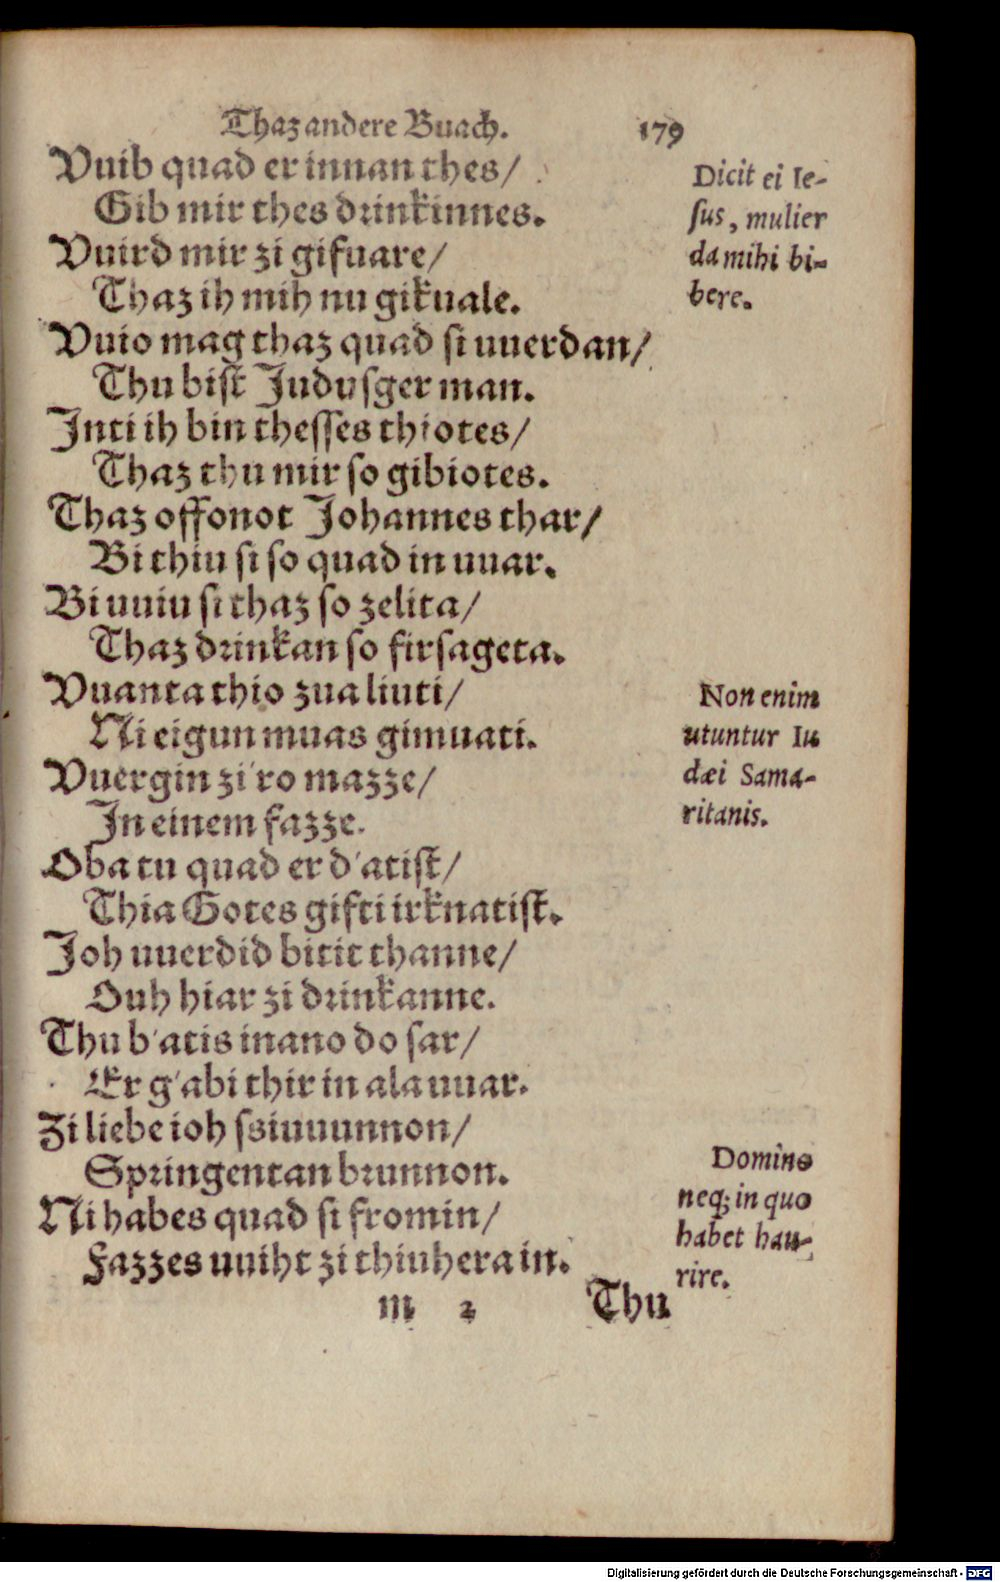 Thaz andere Buach. 179
Vuib quad er innan thes/
Gib mir thes drinkinnes.
Vuird mir zi gifuare/
Thaz ih mih nu gikuale.
Vuio mag thaz quad si uuerdan/
Thu bist Judvsger man.
Inti ih bin thesses thiotes/
Thaz thu mir so gibiotes.
Thaz offonot Johannes thar/
Bi thiu si so quad in uuar.
Bi uuiu si thaz so zelita/
Thaz drinkan so firsageta.
Vuanta thio zua liuti/
Ni eigun muas gimuati.
Vuergin zi'ro mazze/
In einem fazze.
Oba tu quad er d'atist/
Thia Gotes gifti irknatist.
Joh uuerdid bitit thanne/
Ouh hiar zi drinkanne.
Thu b'atis inano do sar/
Er g'abi thir in ala uuar.
Zi liebe ioh ssiuuunnon/
Springentan brunnon.
Ni habes quad si fromin/
Fazzes uuiht zi thiu hera in.
m 2 Thu
Dicit ei Ie-
sus, mulier
da mihi bi-
bere.
Non enim
utuntur Iu
dæi Sama-
ritanis.
Domine
neq; in quo
habet hau-
rire.
Digitalisierung gefördert durch die Deutsche Forschungsgemeinschaft - DFG